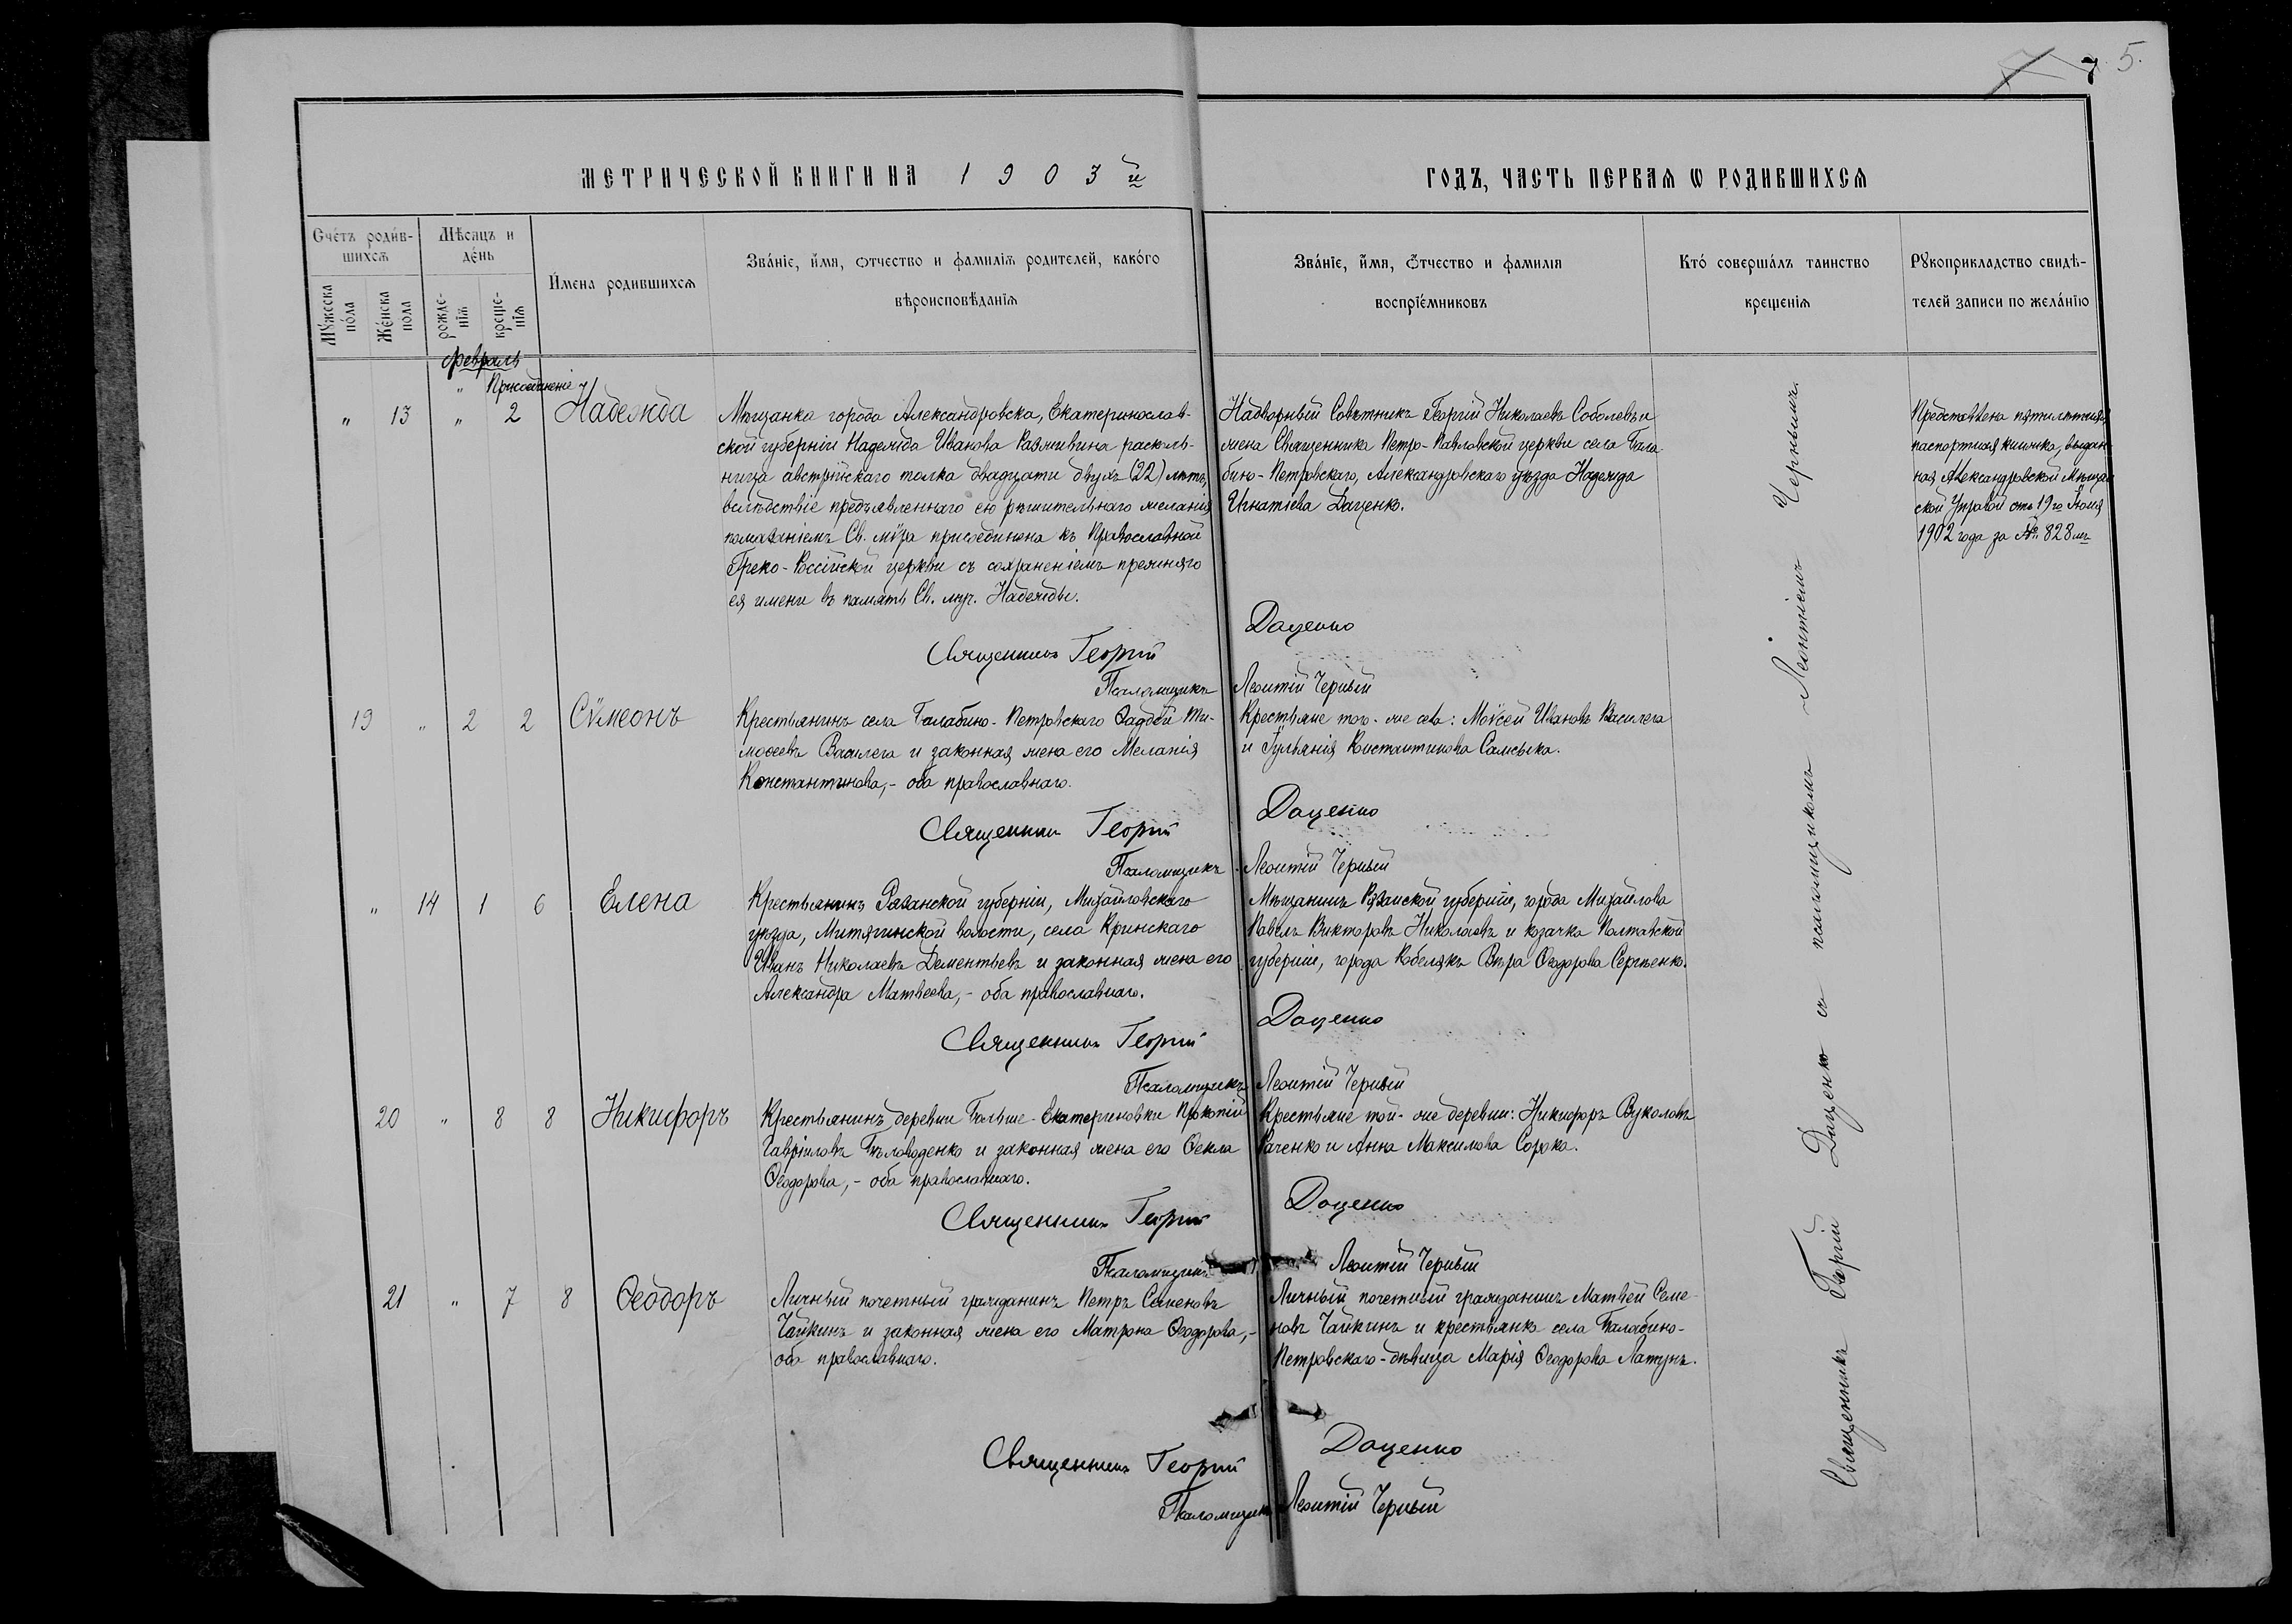 7 7 5.
МЕТРИЧЕСКОЙ КНИГИ НА 1903й ГОДЪ, ЧАСТЬ ПЕРВАЯ Ѡ РОДИВШИХСЯ
Счетъ родив-
шихся
Мѣсяцъ и
день
Имена родившихся
Званіе, имя, отчество и фамилія родителей, какого
вѣроисповѣданія
Званіе, имя, отчество и фамилія
воспріемниковъ
Кто совершалъ таинство
крещенія
Рукоприкладство свидѣ-
телей записи по желанію
Мужеска
пола
Женска
пола
рожде-
нія
креще-
нія
Февраль
" Присоединеніе
" 13 " 2 Надежда
Мѣщанка города Александровска, Екатеринослав-
ской губерніи Надежда Иванова Размивина расколь-
ница австрійскаго толка двадцати двухъ (22) лѣтъ,
вслѣдствіе предъявленнаго ею рѣшительнаго желанія
помазаніемъ Св. мѵра присоединена къ Православной
Греко-Россійской церкви съ сохраненіемъ прежняго
ея имени въ память Св. муч. Надежды.
Надворный Совѣтникъ Георгій Николаевъ Соболевъ и
жена Священника Петро-Павловской церкви села Бала
бино-Петровскаго, Александровскаго уѣзда Надежда
Игнатіева Даценко.
Представлена пятилѣтняя
паспортная книжка, выдан-
ная Александровской Мѣщан
ской Управой отъ 19го Іюня
1902 года за № 828мъ
Священникъ Георгій Даценко
Псаломщикъ Леонтій Черный
19 " 2 2 Сѵмеонъ
Крестьянинъ села Балабино-Петровскаго Фаддей Ти-
моѳеевъ Василега и законная жена его Меланія
Константинова,- оба православнаго.
Крестьяне того-же села: Моѵсей Ивановъ Василега
и Іуліанія Константинова Самсыка.
Священникъ Георгій Даценко
Псаломщикъ Леонтій Черный
" 14 1 6 Елена
Крестьянинъ Рязанской губерніи, Михайловскаго
уѣзда, Митягинской волости, села Кринскаго
Иванъ Николаевъ Дементьевъ и законная жена его
Александра Матвеева,- оба православнаго.
Мѣщанинъ Рязанской губерніи, города Михайлова
Павелъ Викторовъ Николаевъ и козачка Полтавской
губерніи, города Кобелякъ Вѣра Ѳеодорова Сергѣенко.
Священникъ Георгій Даценко
Псаломщикъ Леонтій Черный
20 " 8 8 Никифоръ
Крестьянинъ деревни Больше-Екатериновки Прокопій
Гавріиловъ Бѣловоденко и законная жена его Ѳекла
Ѳеодорова,- оба православнаго.
Крестьяне той-же деревни: Никифоръ Вуколовъ
Раченко и Анна Максимова Сорока.
Священникъ Георгій Даценко
Псаломщикъ Леонтій Черный
21 " 7 8 Ѳеодоръ
Личный почетный гражданинъ Петръ Семеновъ
Чайкинъ и законная жена его Матрона Ѳеодорова,-
оба православнаго.
Личный почетный гражданинъ Матвей Семе-
новъ Чайкинъ и крестьянка села Балабино-
Петровскаго-дѣвица Марія Ѳеодорова Латунъ.
Священникъ Георгій Даценко
Псаломщикъ Леонтій Черный
Священникъ Георгій Даценко съ псаломщикомъ Леонтіемъ Чернымъ.